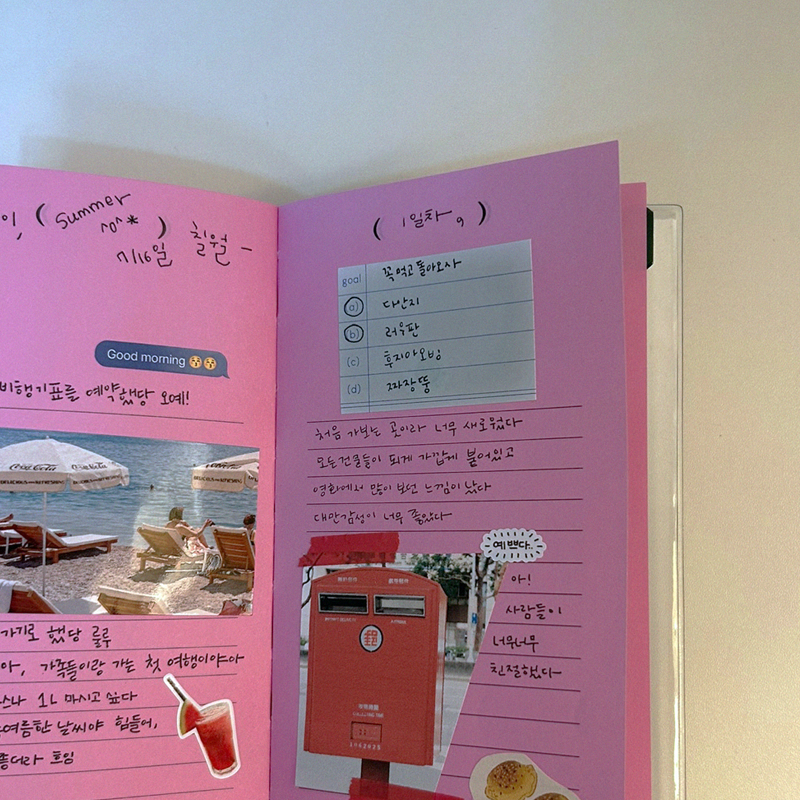 이, ( summer ^o^* )
7/16일 칠월 ~
Good morning 😚😚
비행기표를 예약했당 오예!
Coca-Cola
가기로 했당 룰루
아, 가족들이랑 가는 첫 여행이야아
1L 마시고 싶다
여름한 날씨야 힘들어,
( 1일차 )
goal 꼭 먹고 돌아오사
(a) 다반지
(b) 러우판
(c) 후지아오빙
(d) 짜장뚱
처음 가보는 곳이라 너무 새로웠다
모든건물들이 되게 가깝게 붙어있고
영화에서 많이 보던 느낌이 났다
대만감성이 너무 좋았다
예쁘다..
아!
사람들이
너무너무
친절했다~
郵